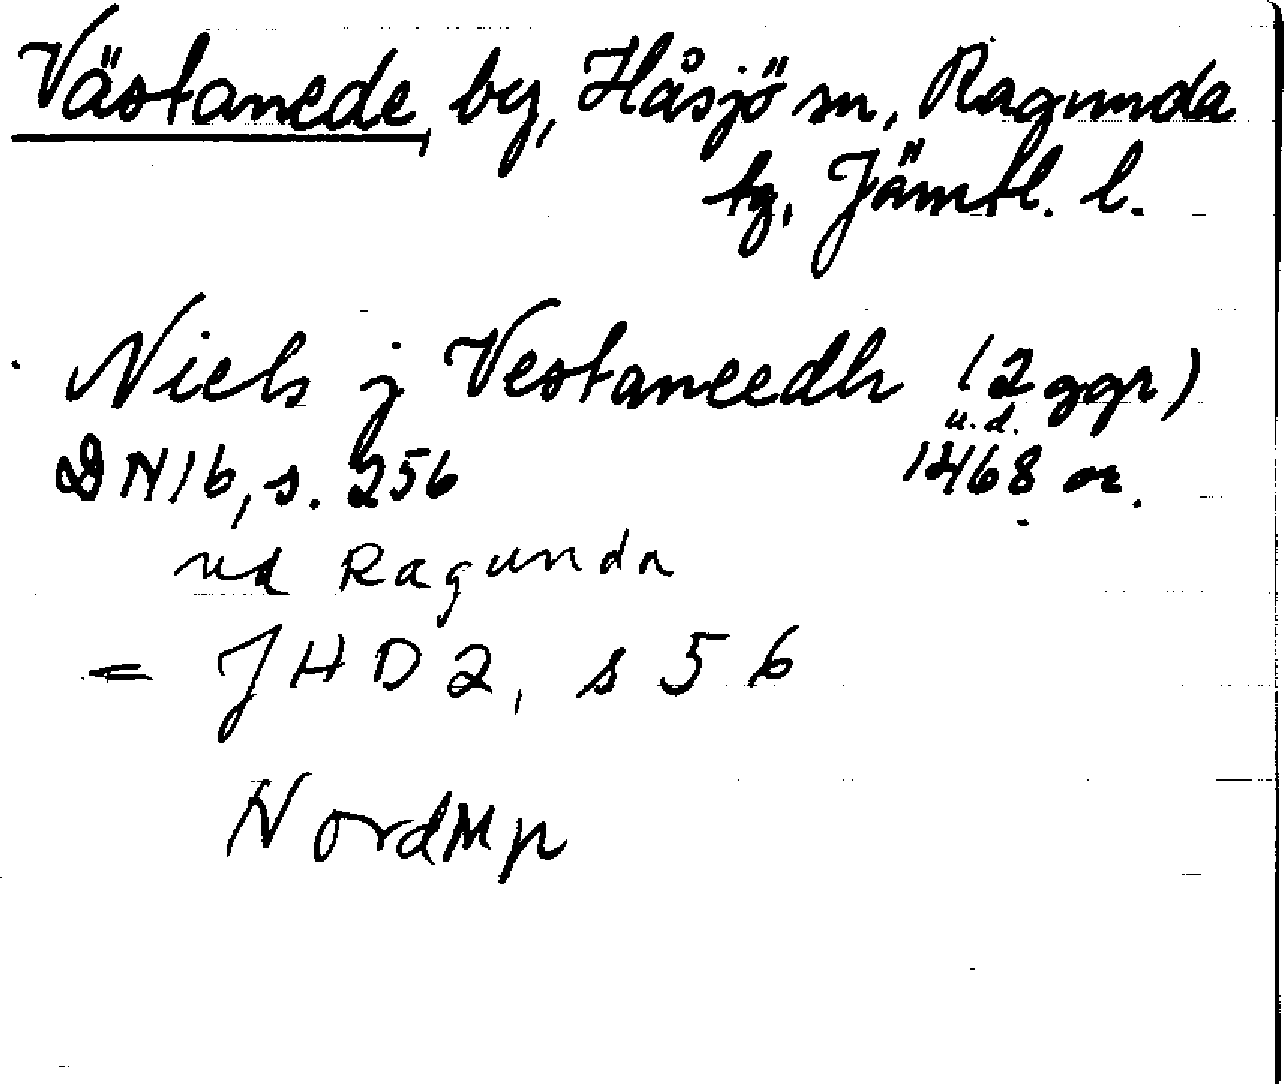 Västanede, by, Håsjö sn, Ragunda
tg, Jämtl. l.
Niels j Vestaneedh (2 ggr)
u.d.
DN16, s. 256 1468 or.
vid Ragunda
= JHD2, s 56
NordMp